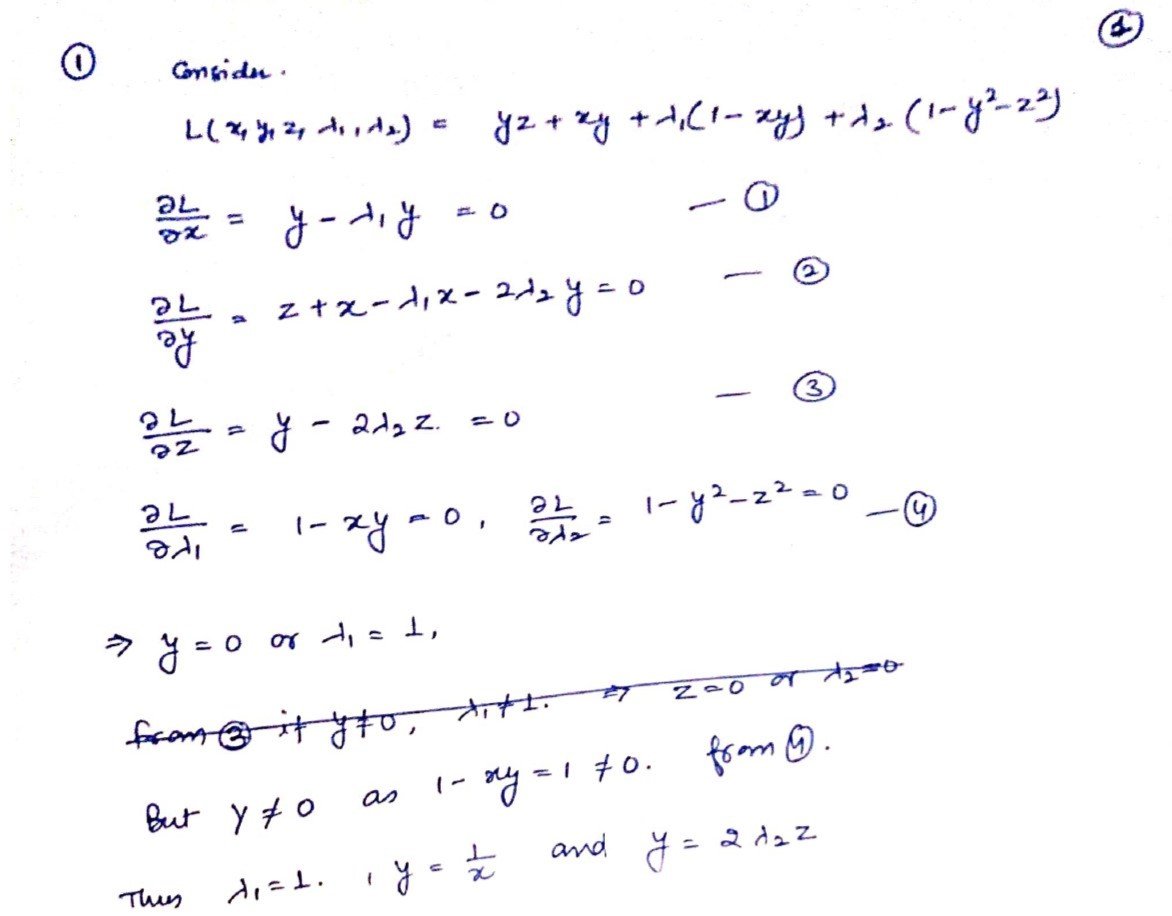 ②
① Consider.
L(x, y, z, λ₁, λ₂) = yz + xy + λ₁(1 - xy) + λ₂ (1 - y² - z²)
∂L/∂x = y - λ₁y = 0 — ①
∂L/∂y = z + x - λ₁x - 2λ₂y = 0 — ②
∂L/∂z = y - 2λ₂z. = 0 — ③
∂L/∂λ₁ = 1 - xy = 0, ∂L/∂λ₂ = 1 - y² - z² = 0 — ④
⇒ y = 0 or λ₁ = 1,
from ③ if y ≠ 0, λ₁ ≠ 1. ⇒ z = 0 or λ₂ = 0
But y ≠ 0 as 1 - xy = 1 ≠ 0. from ④.
Thus λ₁ = 1. , y = 1/x and y = 2λ₂z